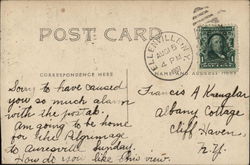 POST CARD
ELLENVILLE N.Y.
AUG 5
4 PM
CORRESPONDENCE HERE
NAME AND ADDRESS HERE
Sorry to have caused
you so much alarm
with the postal.
Am going to be home
for the Pilgrimage
to Sunday.
How do you like this view.
Francis A
Albany Cottage
Cliff Haven,
N.Y.